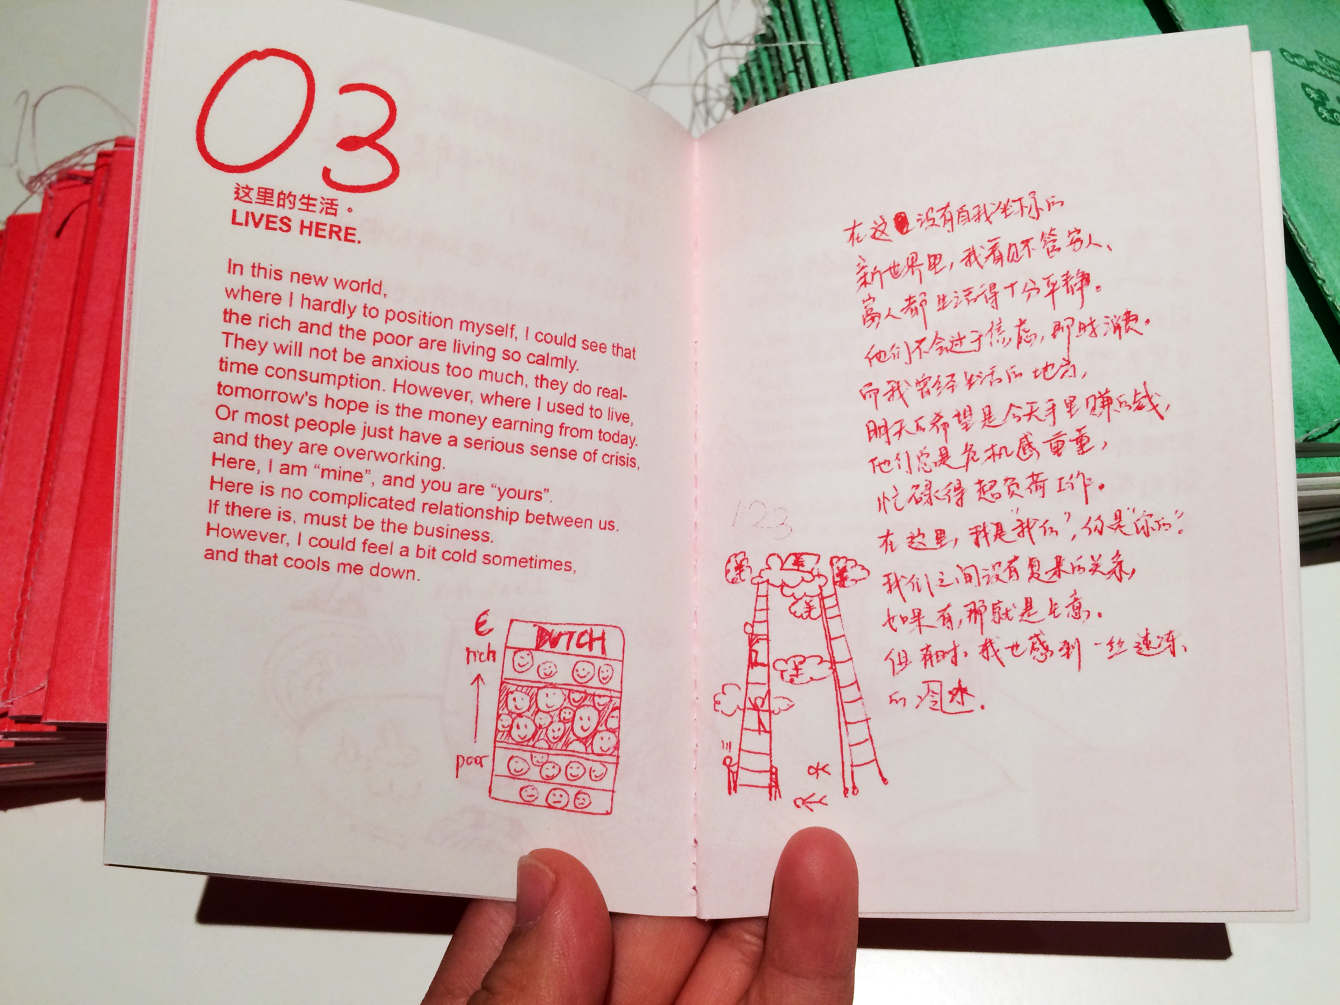 03
这里的生活。
LIVES HERE.
In this new world,
where I hardly to position myself, I could see that
the rich and the poor are living so calmly.
They will not be anxious too much, they do real-
time consumption. However, where I used to live,
tomorrow's hope is the money earning from today.
Or most people just have a serious sense of crisis,
and they are overworking.
Here, I am “mine”, and you are “yours”.
Here is no complicated relationship between us.
If there is, must be the business.
However, I could feel a bit cold sometimes,
and that cools me down.
€
DUTCH
rich
poor
在这没有自我坐标的
新世界里，我看见不管穷人、
富人都生活得十分平静。
他们不会过于焦虑，即时消费。
而我曾经生活的地方，
明天的希望是今天手里赚的钱，
他们总是危机感重重，
忙碌得超负荷工作。
在这里，我是“我的”，你是“你的”。
我们之间没有复杂的关系，
如果有，那就是生意。
但有时，我也感到一丝速冻
的冷冰。
123
¥
¥
¥
¥
¥